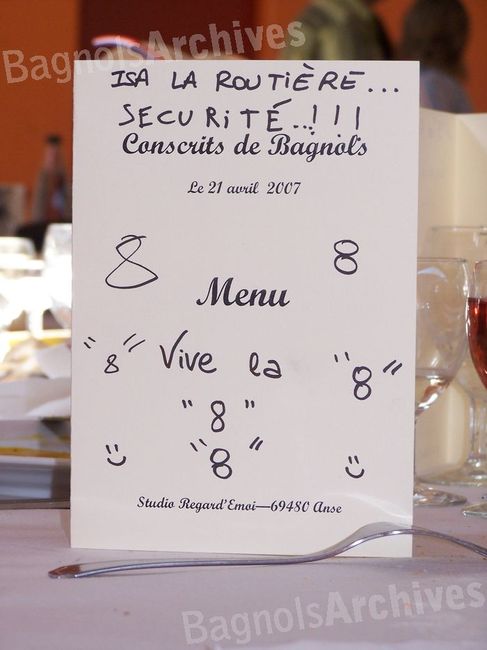 BagnolsArchives
ISA LA ROUTIÈRE...
SECURITÉ..!!!
Conscrits de Bagnols
Le 21 avril 2007
8 8
Menu
"8" Vive la "8"
"8"
"8"
Studio Regard'Emoi—69480 Anse
BagnolsArchives